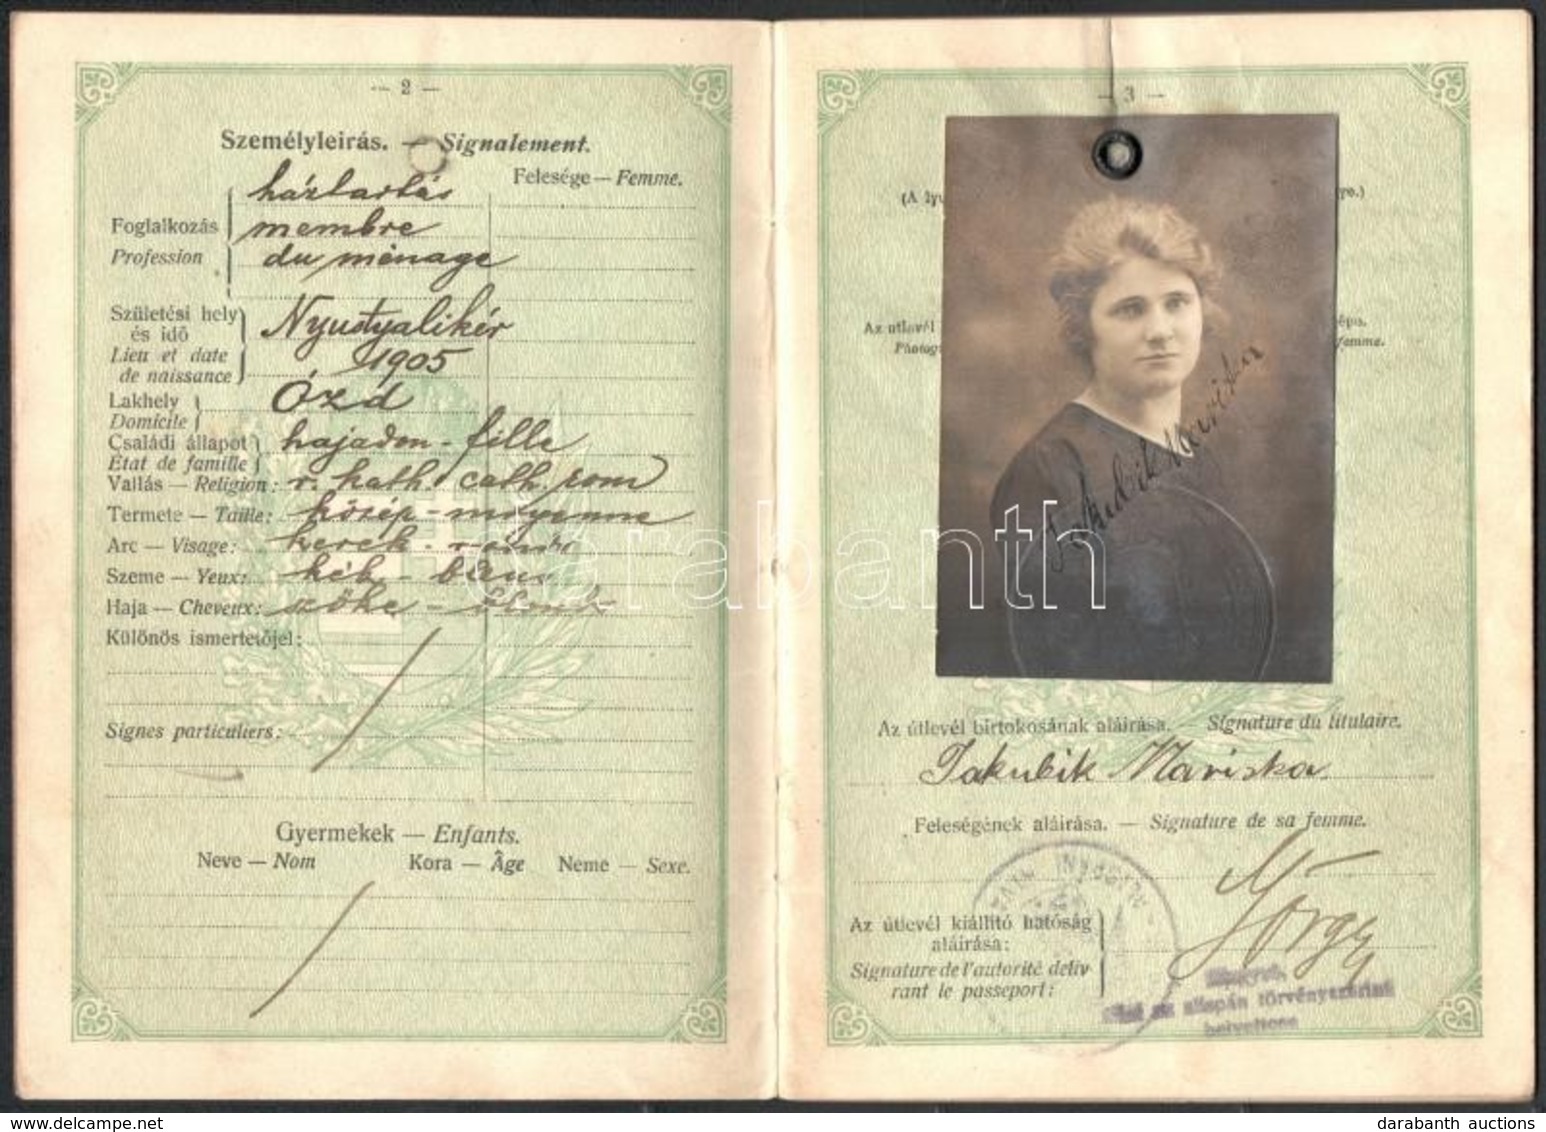 — 2 —
Személyleirás. — Signalement.
háztartás
Felesége — Femme.
Foglalkozás
membre
Profession
du ménage
Születési hely
és idő
Lieu et date
de naissance
1905
Lakhely
Ózd
Domicile
Családi állapot
hajadon - fille
État de famille
Vallás — Religion: r. kath. cath. rom
Termete — Taille: közép - moyenne
Arc — Visage: kerek -
Szeme — Yeux: kék -
Haja — Cheveux: szőke - blonde
Különös ismertetőjel:
Signes particuliers:
Gyermekek — Enfants.
Neve — Nom Kora — Âge Neme — Sexe.
— 3 —
(A
Az útlevél
Photog
femme.
Jakubik Mariska
Az útlevél birtokosának aláirása. — Signature du titulaire.
Jakubik Mariska
Feleségének aláirása. — Signature de sa femme.
Az útlevél kiállitó hatóság
aláirása:
Signature de l'autorité déliv
rant le passeport:
darabanth
darabanth auctions